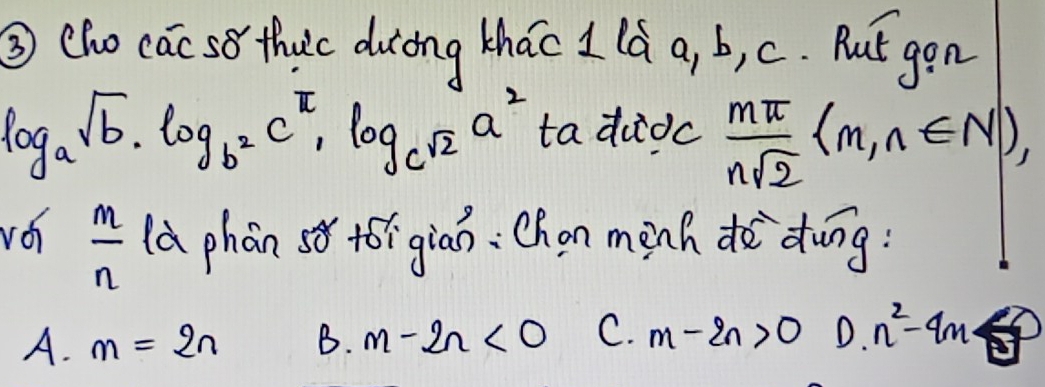 ③ Cho các số thực dương khác 1 là a, b, c. Rút gọn
logₐ√b . log_{b²} c^π, log_{c^{√2}} a² ta được \frac{mπ}{n√2} (m, n ∈ N),
với \frac{m}{n} là phân số tối giản. Chọn mệnh đề đúng:
A. m = 2n B. m - 2n < 0 C. m - 2n > 0 D. n² - 4m